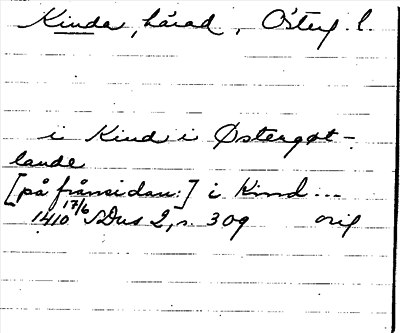 Kinda, härad, Österg. l.
i Kind i Østergøt-
lande
[på frånsidan:] i Kind...
1410 17/6 SDns 2, s. 309 orig